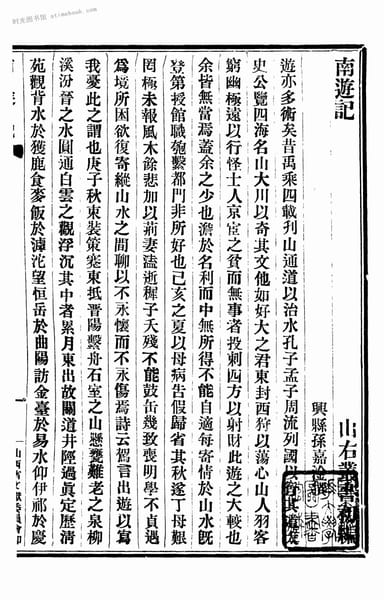 时光图书馆 stimebook.com
南遊記
興縣孫嘉淦
山右叢書初編
遊亦多術矣昔禹乘四載刋山通道以治水孔子孟子周流列國以行其道
史公覽四海名山大川以奇其文他如好大之君東封西狩以蕩心山人羽客
窮幽極遠以行怪士人京宦之貧而無事者投刺四方以射財此遊之大較也
余皆無當焉蓋余之少也澹於名利而中無所得不能自適每寄情於山水旣
登第授館職匏繫都門非所好也己亥之夏以母病吿假歸省其秋遂丁母艱
罔極未報風木餘悲加以荊妻溘逝稺子夭殘不能鼓缶幾致喪明學不貞遇
爲境所困欲復寄縱山水之間聊以不永懷而不永傷焉詩云駕言出遊以寫
我憂此之謂也庚子秋束裝策蹇東抵晉陽繫舟石室之山懸甕難老之泉柳
溪汾晉之水圓通白雲之觀浮沉其中者累月東出故關道井陘過眞定歷淸
苑觀背水於獲鹿食麥飯於滹沱望恒岳於曲陽訪金臺於易水仰伊祁於慶
一
山西省文獻委員會印